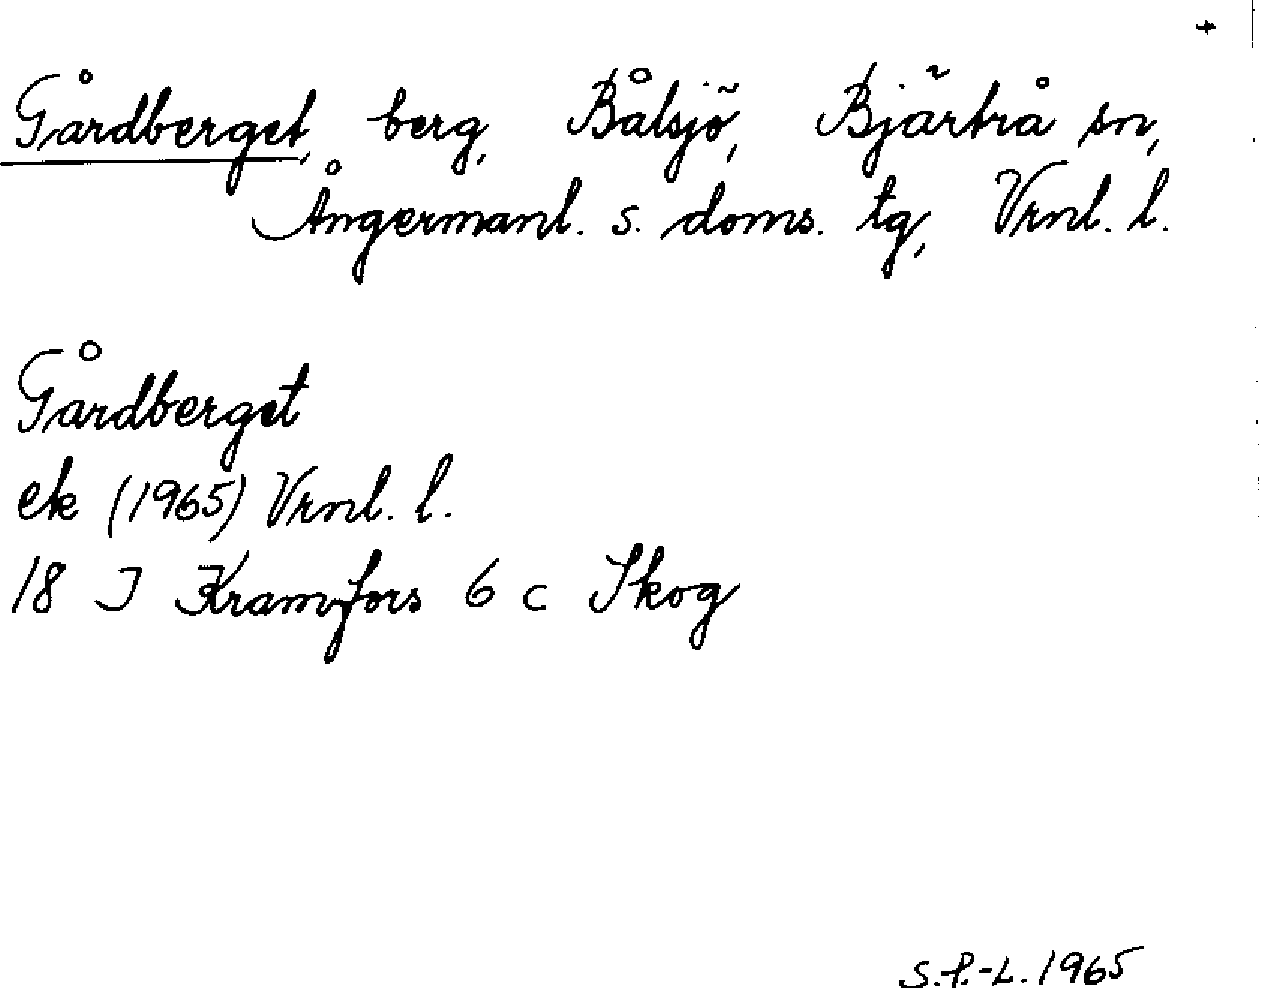 +
Gårdberget, berg, Bålsjö, Bjärtrå sn,
Ångermanl. s. doms. tg, Vrnl. l.
Gårdberget
ek (1965) Vrnl. l.
18 J Kramfors 6 c Skog
S.P.-L. 1965